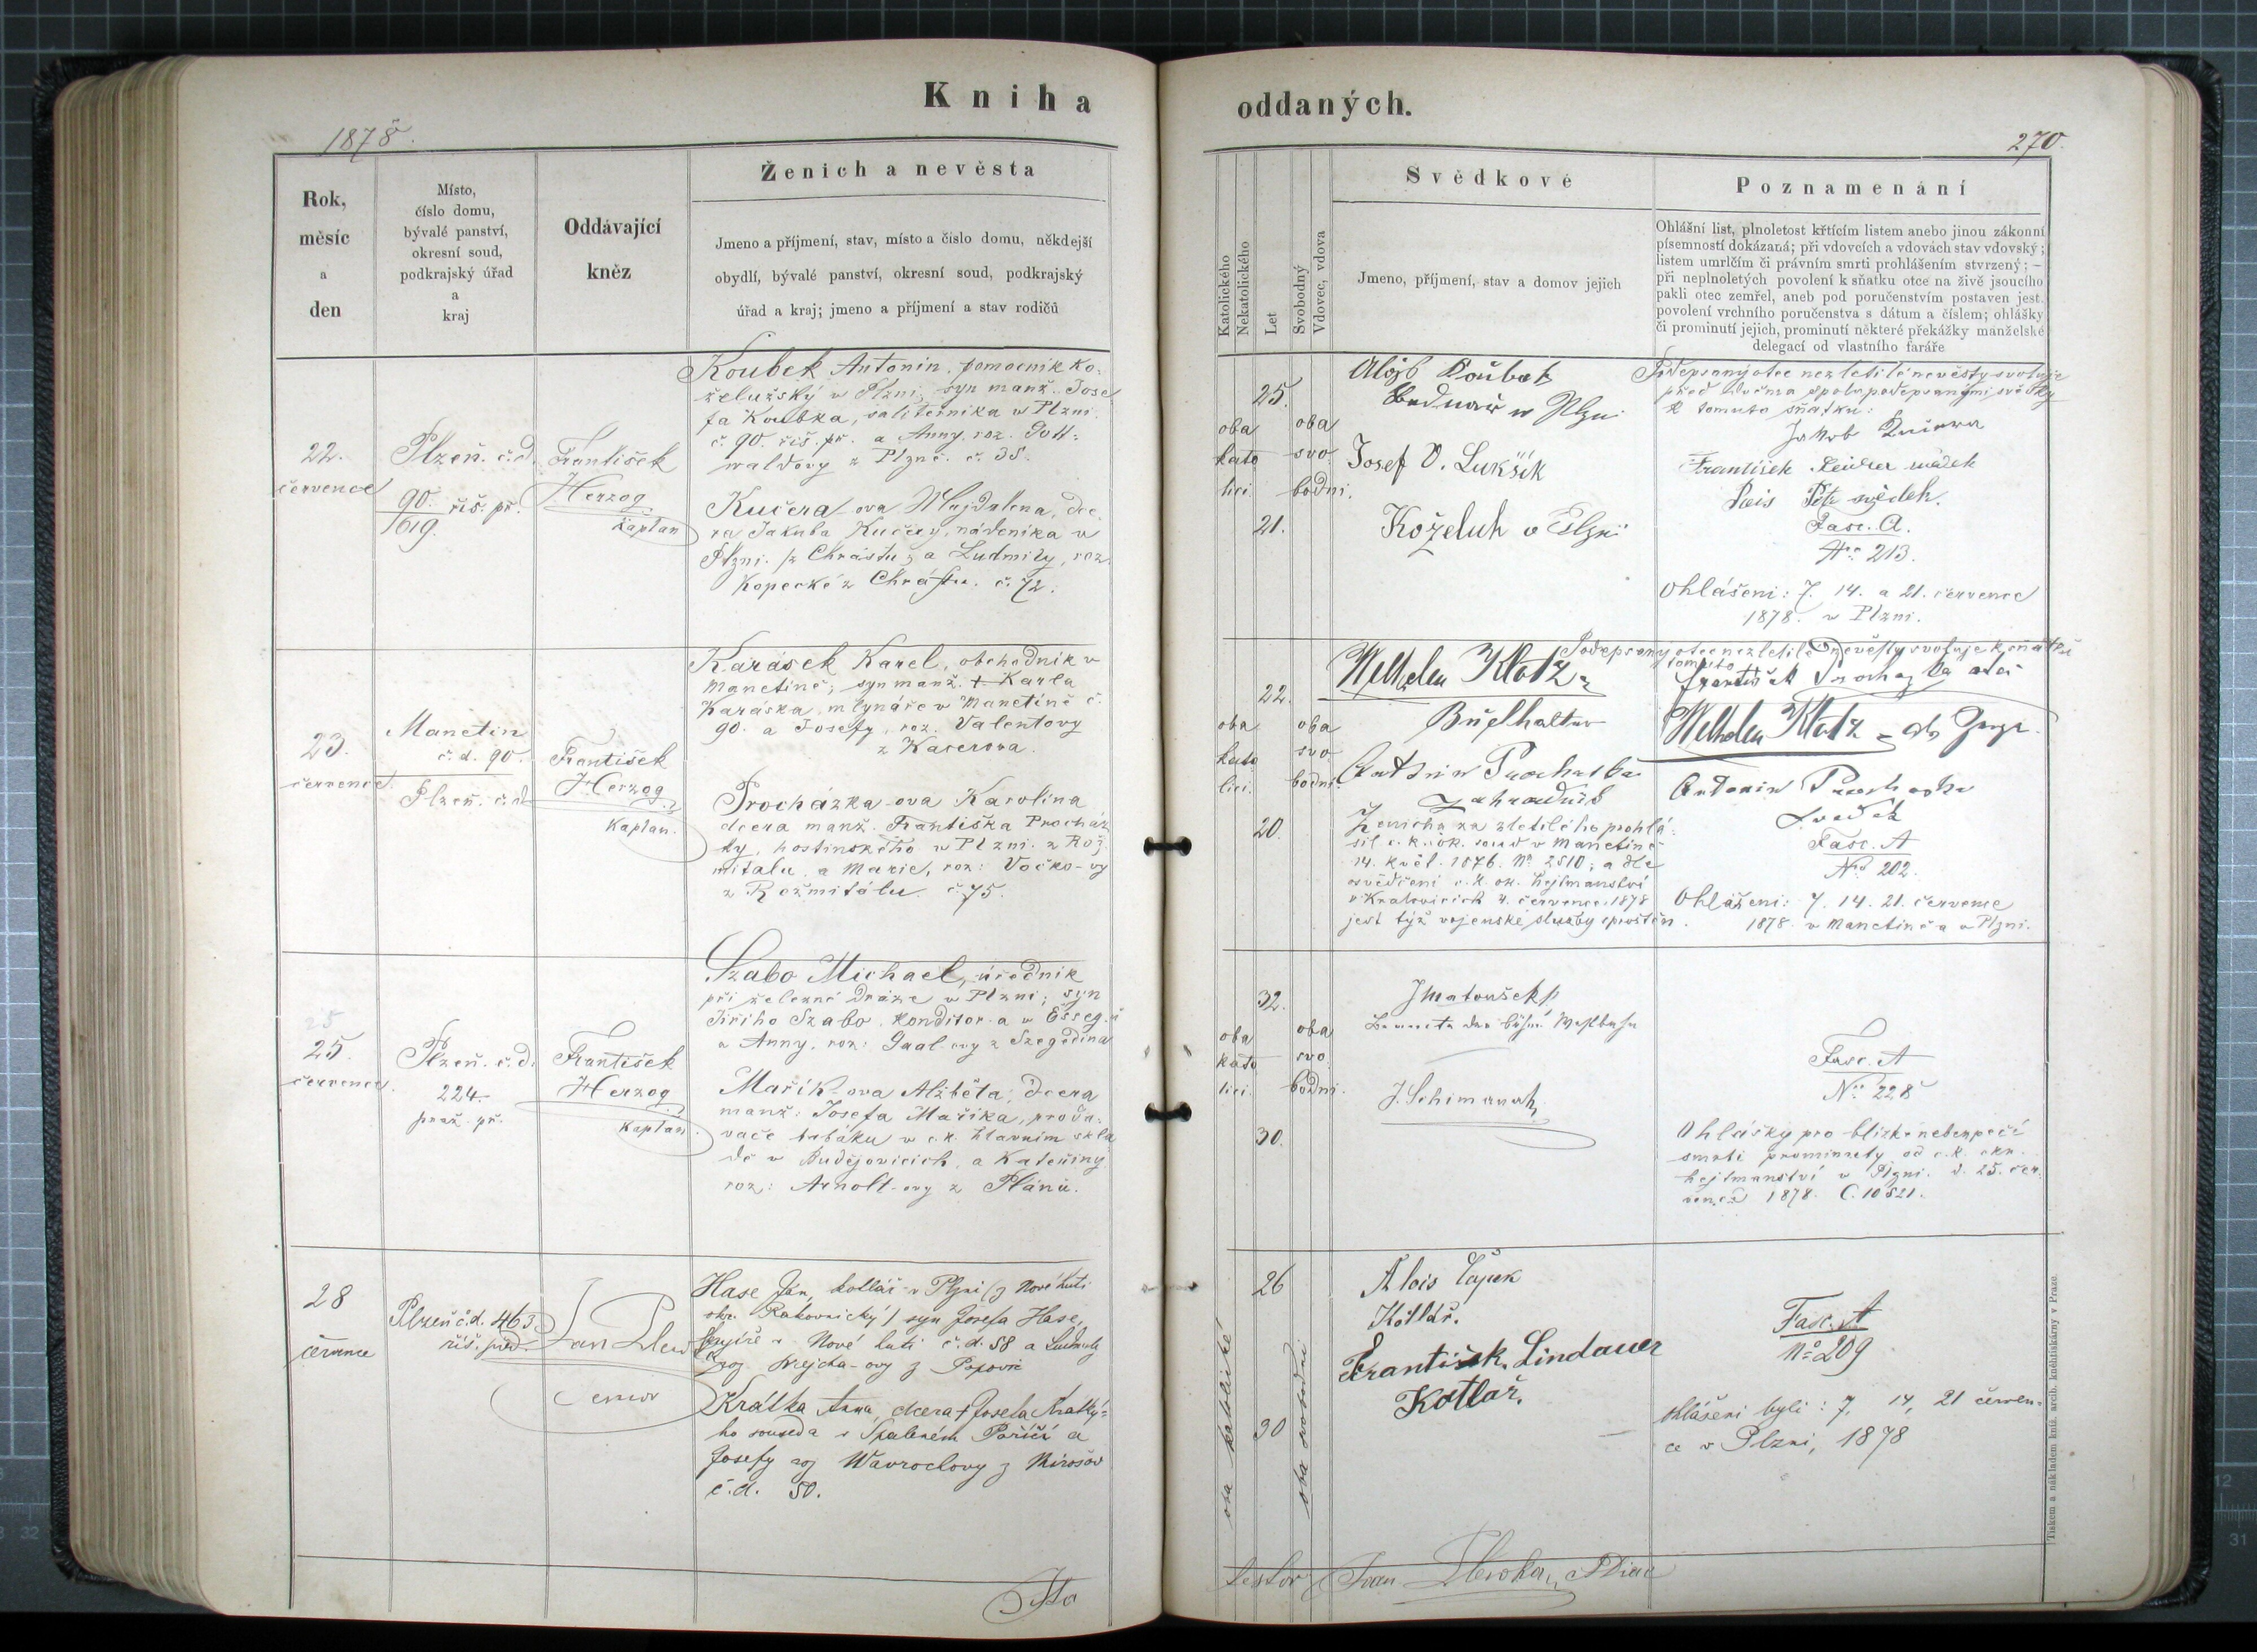 Kniha
1878.
Rok,
měsíc
a
den
Místo,
číslo domu,
bývalé panství,
okresní soud,
podkrajský úřad
a
kraj
Oddávající
kněz
Ženich a nevěsta
Jmeno a příjmení, stav, místo a číslo domu, někdejší
obydlí, bývalé panství, okresní soud, podkrajský
úřad a kraj; jmeno a příjmení a stav rodičů
22.
července
Plzeň. č. d.
90. řiš. př.
1619.
František
Herzog
kaplan
Koubek Antonin, pomocnik ko-
želužský w Plzni; syn manž. Jose
fa Koubka, w Plzni
č. 90. řiš. př. a Anny, roz. Gott=
waldovy z Plzně. č. 38.
Kučera-ova Majdalena, dce
ra Jakuba Kučery, nádeníka w
Plzni. z Chrástu; a Ludmily, roz.
Kopecké z Chrástu. č. 72.
23.
července
Manetin
č. d. 90.
Plzeň. č. d.
František
Herzog
Kaplan.
Karásek Karel, obchodnik v
Manetině, syn manž. † Karla
Karáska, mlynáře v Manetině č.
90. a Josefy, roz. Valentovy
z Kacerova.
Procházka-ova Karolina
dcera manž. Františka Procház
ky, hostinského w Plzni. z Rož
mitalu, a Marie, roz: Vočko-vy
z Rožmitálu. č. 75.
25
25.
července.
Plzeň. č. d.
224.
praž. př.
František
Herzog
Kaplan.
Szabo Michael, úředník
při železné dráze w Plzni; syn
Jiřiho Szabo, konditor-a w Esseg-u
a Anny, roz: Gaal-ovy z Szegedina
Mařík-ova Alžběta, dcera
manž: Josefa Maříka, proda-
vače tabáku w c. k. hlavním skla
dě v Budějovicich, a Kateřiny
roz: Arnolt-ovy z Plánu.
28
července
Plzeň č. d. 463
řiš. před.
Jan
Hase Jan, kotlář v Plzni (z Nové huti
okr. Rakovnický) syn Josefa Hase,
v Nové huti č. d. 58 a Ludmily
roz Krejcha-ovy z Popovic
Krátka Anna, dcera † Josefa Krátký=
ho souseda v Spáleném Poříčí a
Josefy roz Wavrochovy z Mirošov
č. d. 50.
oddaných.
270.
Katolického
Nekatolického
Let
Svobodný
Vdovec, vdova
Svědkové
Jmeno, příjmení, stav a domov jejich
Poznamenání
Ohlášní list, plnoletost křtícím listem anebo jinou zákonní
písemností dokázaná; při vdovcích a vdovách stav vdovský;
listem umrlčím či právním smrti prohlášením stvrzený; —
při neplnoletých povolení k sňatku otce na živě jsoucího
pakli otec zemřel, aneb pod poručenstvím postaven jest.
povolení vrchního poručenstva s dátum a číslem; ohlášky
či prominutí jejich, prominutí některé překážky manželské
delegací od vlastního faráře
25.
oba
kato
lici.
oba
svo
bodni.
21.
Koubek
Bednař w Plzni
Josef V. Lukšík
Koželuh v Plzni
Podepsaný otec nezletilé nevěsty svoluje
před dvěma spolupodepsanými svědky
k tomuto sňatku:
Jakob Kučera
František svědek
Petr svědek.
Fasc. A.
No: 213.
Ohlášeni: 7. 14. a 21. července
1878. w Plzni.
22.
oba
kato
lici.
oba
svo
bodni.
20.
Wilhelm Klotz
Buchhalter
Antonin Prochaska
Zahradník
Ženicha za zletilého prohlá-
sil c. k. ok. soud v Manetině
14. květ. 1876. No 2510; a dle
osvědčení c. k. ok. hejtmanství
v Kralovicich 4. července 1878
jest týž vojenské služby sproštěn.
Podepsaný otec nezletilé nevěsty svoluje k sňatku
tomuto
František Prochazka otec
Wilhelm Klotz - als Zeuge.
Antonin Prochaska
Svědek
Fasc. A
No 202.
Ohlášeni: 7. 14. 21. července
1878. v Manetině a v Plzni.
32.
oba
kato
lici.
oba
svo
bodni.
30.
J Matoušek
Beamte der böhm. Westbahn
J. Schimanek
Fasc. A
No 228
Ohlášky pro blízké nebezpečí
smrti prominuty od c. k. okr.
hejtmanství v Plzni. d. 25. čer-
vence 1878. Č. 10521.
26
oba katolické
30
oba svobodni
Alois Čapek
Kotlář.
František Lindauer
Kotlář.
Fasc. A
No 209
Ohlášeni byli: 7, 14, 21 červen-
ce v Plzni, 1878
Tiskem a nákladem kníž. arcib. knihtiskárny v Praze.